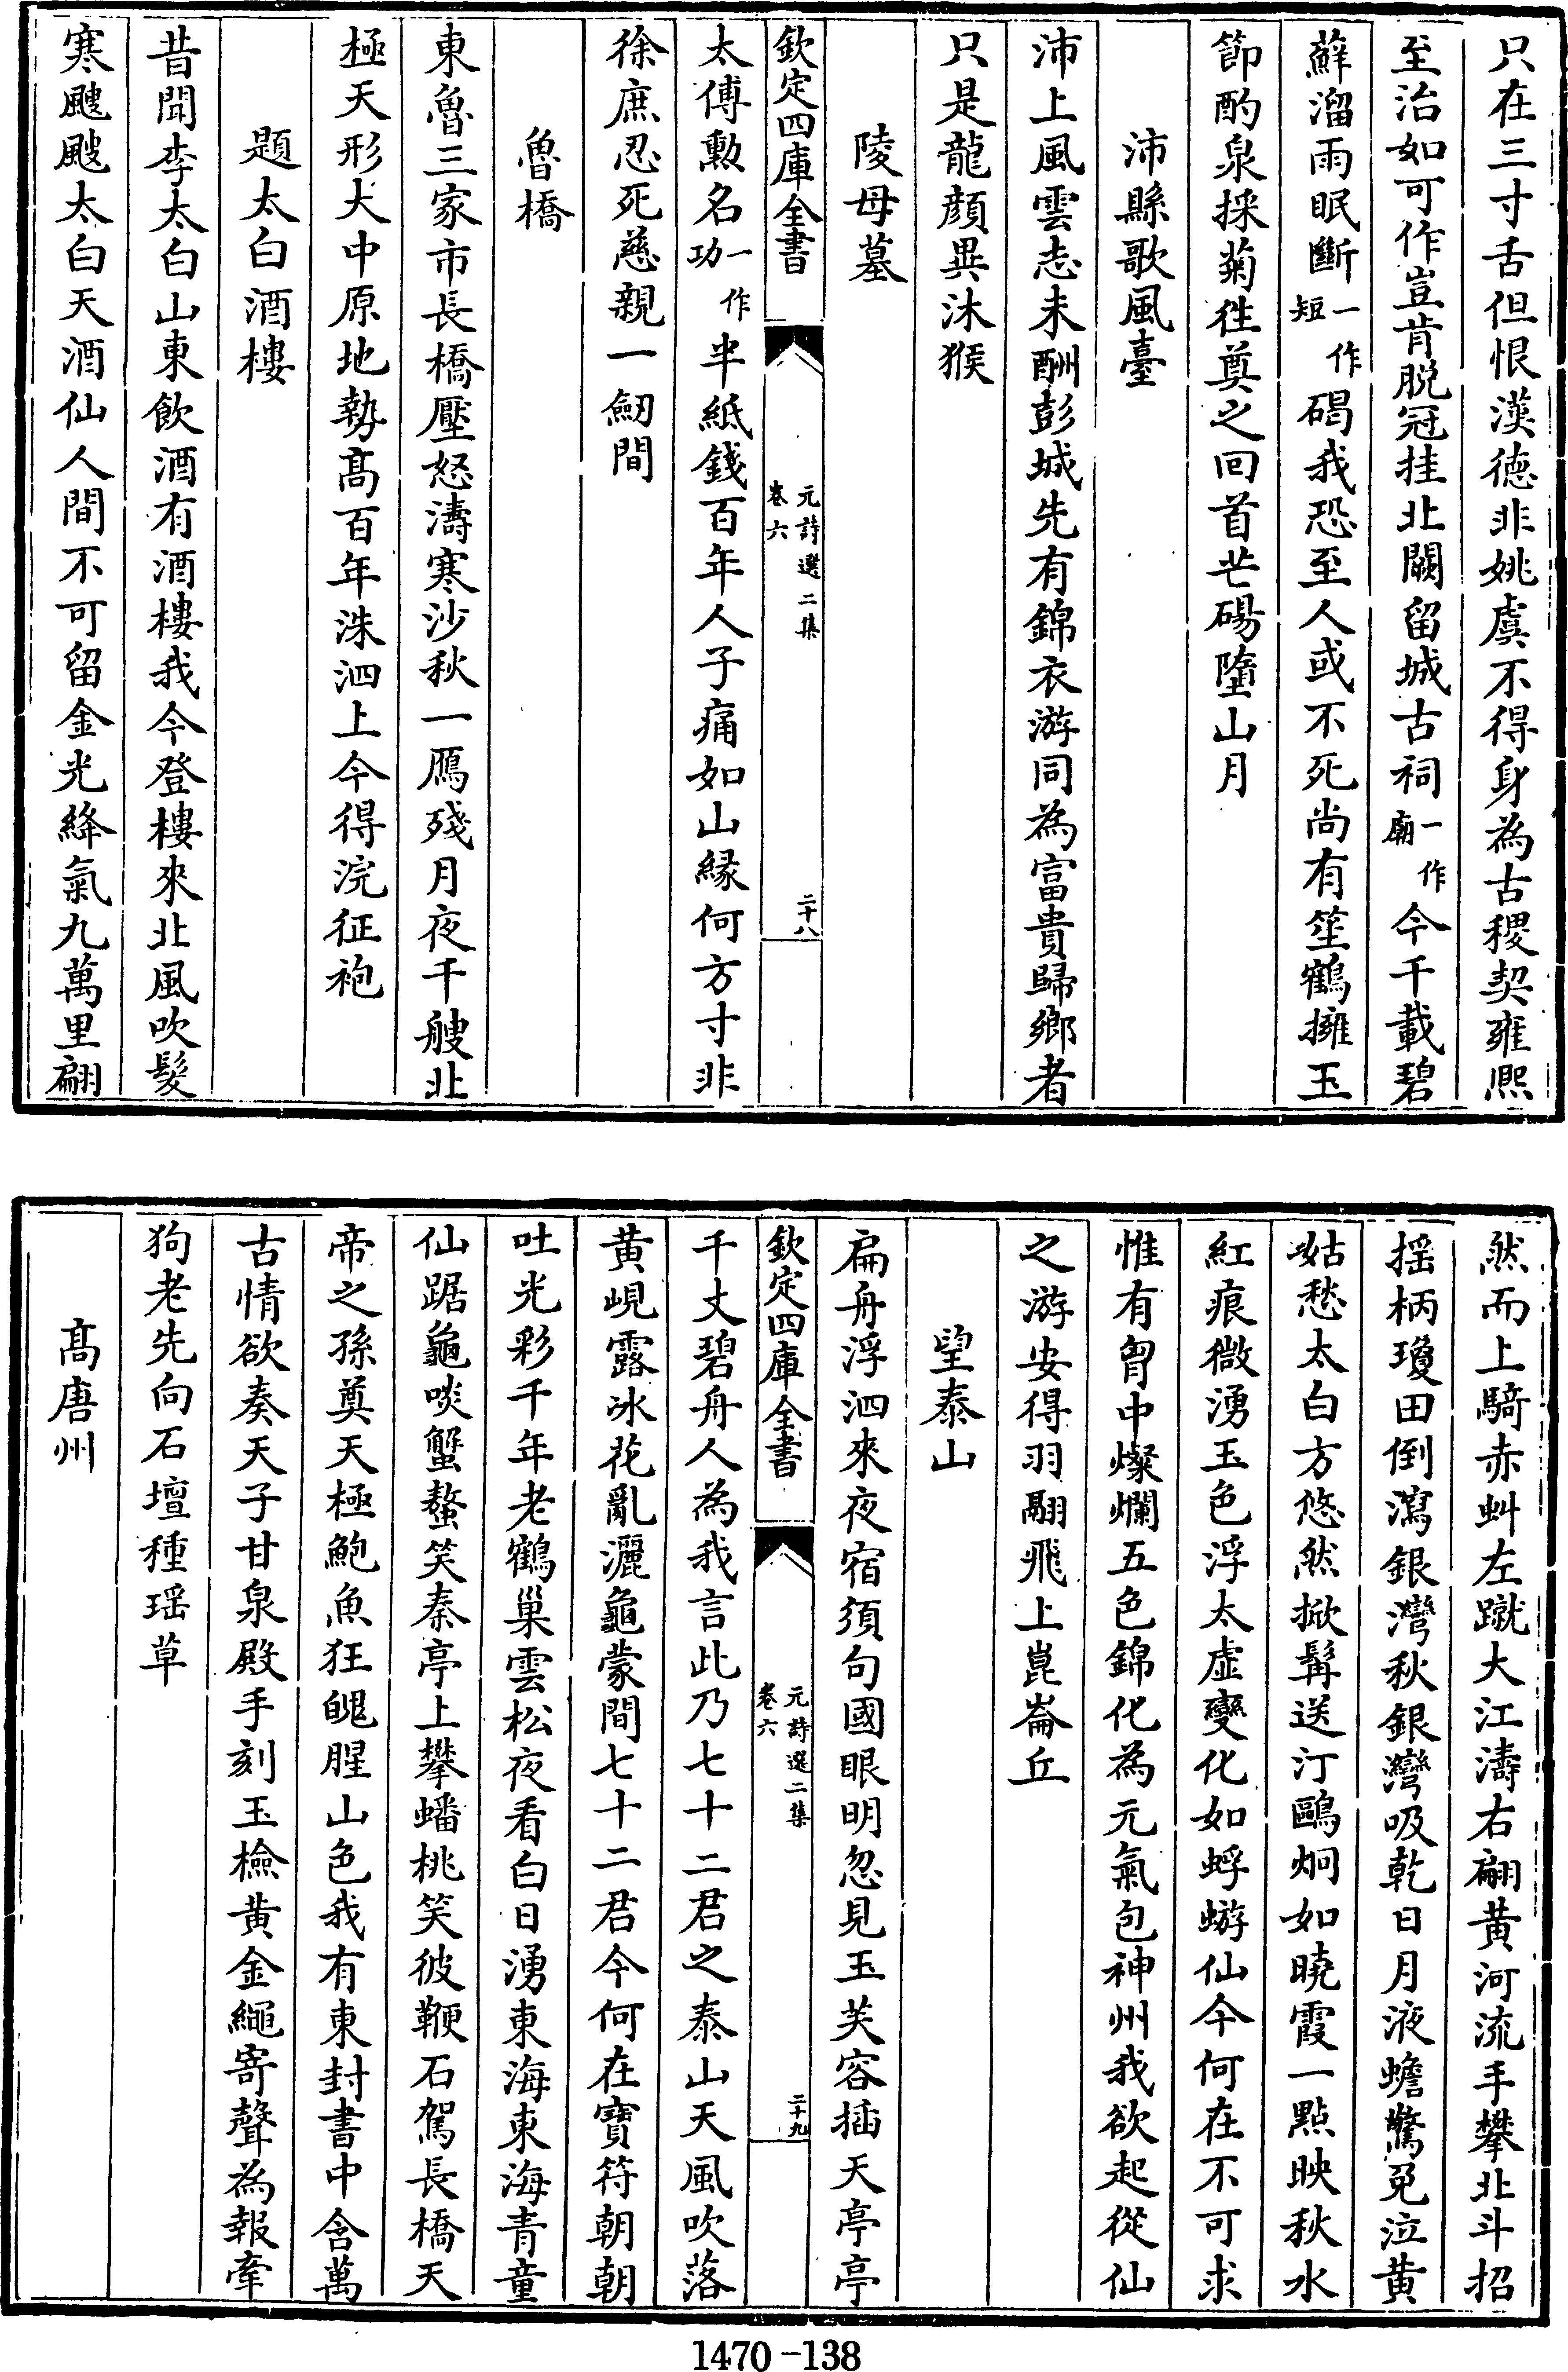 只在三寸舌但恨漢德非姚虞不得身為古稷契雍熙
至治如可作豈肯脱冠挂北闕留城古祠一作廟今千載碧
蘚溜雨眠斷一作短碣我恐至人或不死尚有笙鶴擁玉
節酌泉採菊徃奠之回首芒碭墮山月
沛縣歌風臺
沛上風雲志未酬彭城先有錦衣游同為富貴歸鄉者
只是龍顔異沐猴
陵母墓
欽定四庫全書
元詩選二集
卷六
二十八
太傅勲名一作功半紙錢百年人子痛如山縁何方寸非
徐庶忍死慈親一劒間
魯橋
東魯三家市長橋壓怒濤寒沙秋一鴈殘月夜千艘北
極天形大中原地勢髙百年洙泗上今得浣征袍
題太白酒樓
昔聞李太白山東飲酒有酒樓我今登樓來北風吹髮
寒颼颼太白天酒仙人間不可留金光絳氣九萬里翩
然而上騎赤虯左蹴大江濤右翩黄河流手攀北斗招
揺柄瓊田倒瀉銀灣秋銀灣吸乾日月液蟾驚兎泣黄
姑愁太白方悠然掀髯送汀鷗炯如曉霞一點映秋水
紅痕微湧玉色浮太虚變化如蜉蝣仙今何在不可求
惟有胷中燦爛五色錦化為元氣包神州我欲起從仙
之游安得羽翮飛上崑崙丘
望泰山
扁舟浮泗來夜宿須句國眼明忽見玉芙容插天亭亭
欽定四庫全書
元詩選二集
卷六
二十九
千丈碧舟人為我言此乃七十二君之泰山天風吹落
黄峴露冰花亂灑龜蒙間七十二君今何在寳符朝朝
吐光彩千年老鶴巢雲松夜看白日湧東海東海青童
仙踞龜啖蟹螯笑秦亭上攀蟠桃笑彼鞭石駕長橋天
帝之孫奠天極鮑魚狂魄腥山色我有東封書中含萬
古情欲奏天子甘泉殿手刻玉檢黄金繩寄聲為報牽
狗老先向石壇種瑶草
髙唐州
1470-138